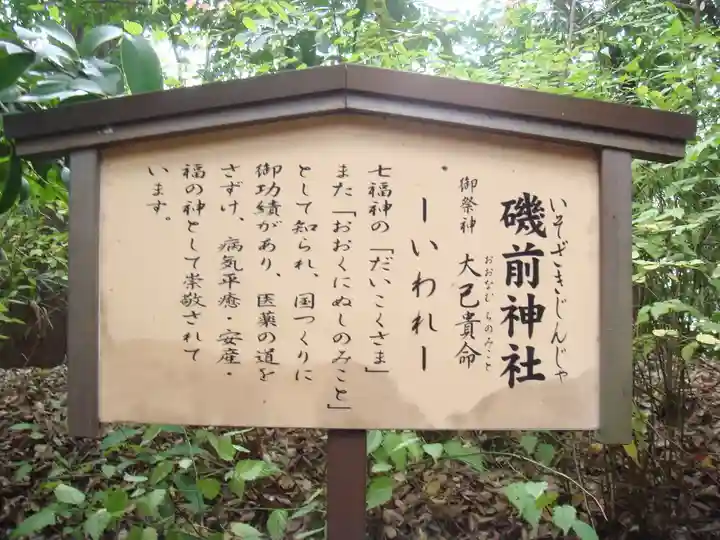 いそざきじんじゃ
磯前神社
御祭神 大己貴命
おおなむちのみこと
ーいわれー
七福神の「だいこくさま」
また「おおくにぬしのみこと」
として知られ、国つくりに
御功績があり、医薬の道を
さずけ、病気平癒・安産・
福の神として崇敬されて
います。